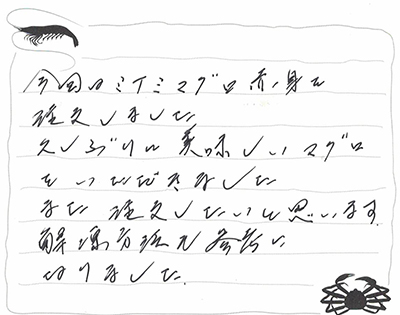 今回はミナミマグロ赤身を
注文しました
久しぶりに美味しいマグロ
をいただきました
また注文したいと思います.
解凍方法も参考に
なりました.